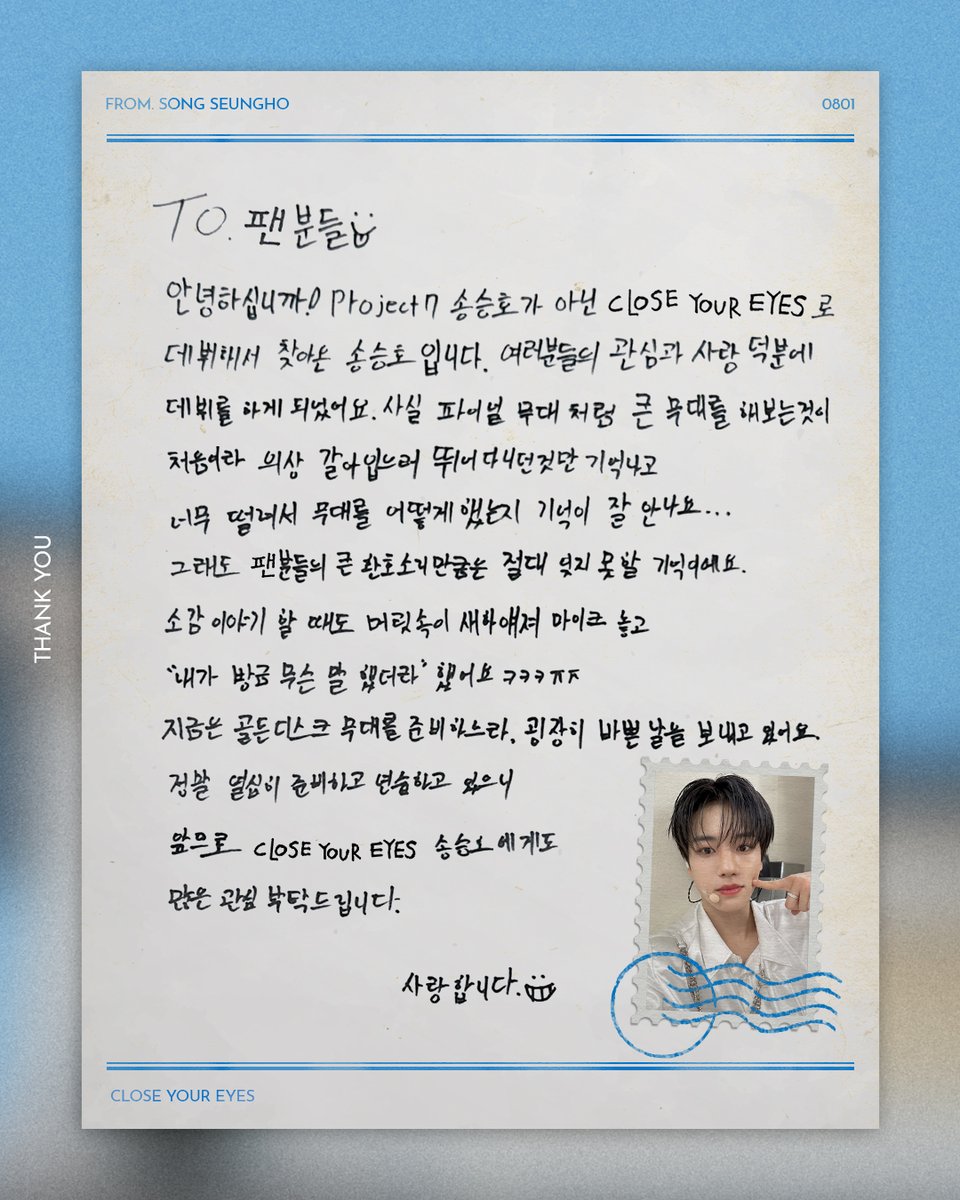 FROM. SONG SEUNGHO
0801
TO. 팬분들
안녕하십니까! Project7 송승호가 아닌 CLOSE YOUR EYES 로
데뷔해서 찾아온 송승호입니다. 여러분들의 관심과 사랑 덕분에
데뷔를 하게 되었어요. 사실 파이널 무대처럼 큰 무대를 해보는것이
처음이라 의상 갈아입으러 뛰어다니던것만 기억나고
너무 떨려서 무대를 어떻게 했는지 기억이 잘 안나요...
그래도 팬분들의 큰 환호소리만큼은 절대 잊지 못할 기억이에요.
소감 이야기 할 때도 머릿속이 새하얘져 마이크 놓고
"내가 방금 무슨 말 했더라" 했어요 ㅋㅋㅋㅠㅠ
지금은 골든디스크 무대를 준비하느라, 굉장히 바쁜 날을 보내고 있어요.
정말 열심히 준비하고 연습하고 있으니
앞으로 CLOSE YOUR EYES 송승호에게도
많은 관심 부탁드립니다.
사랑합니다.
CLOSE YOUR EYES
THANK YOU